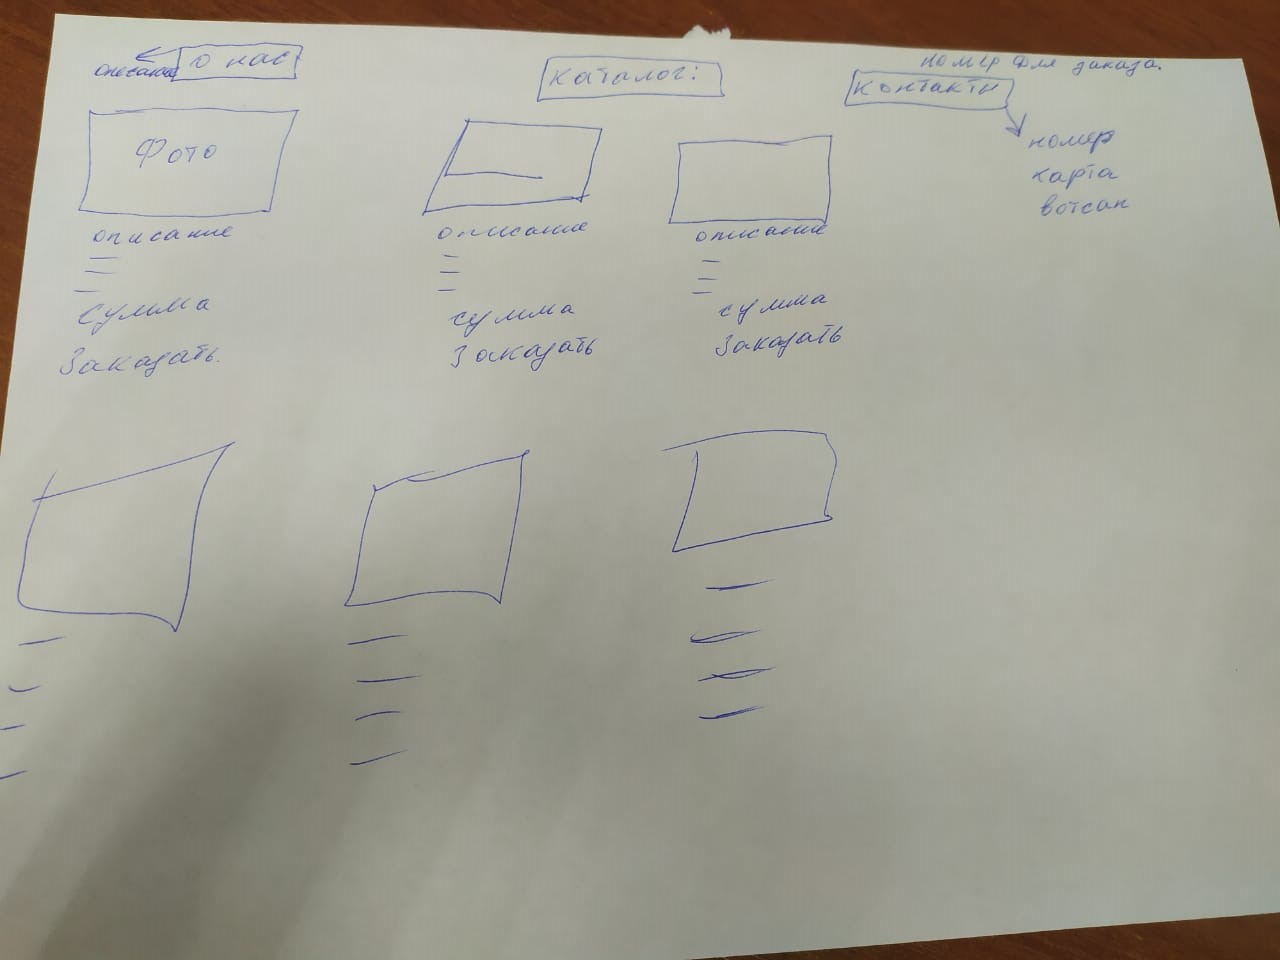 описание о нас
каталог:
номер для заказа.
контакты
номер
карта
вотсап
Фото
описание
сумма
Заказать.
описание
сумма
Заказать
описание
сумма
Заказать